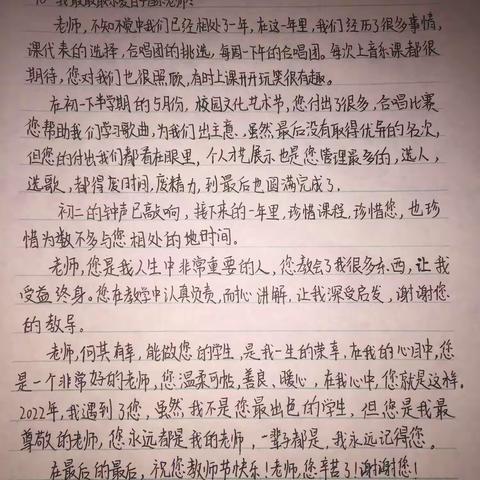 最最最亲爱的
老师，不知不觉中我们已经相处了一年，在这一年里，我们经历了很多事情，
课代表的选择，合唱团的挑选，每周一下午的合唱团。每次上音乐课都很
期待，您对我们也很照顾，有时上课开开玩笑很有趣。
在初一下半学期的5月份，校园文化艺术节，您付出了很多，合唱比赛
您帮助我们学习歌曲，为我们出主意，虽然最后没有取得优异的名次，
但您的付出我们都看在眼里，个人才艺展示也是您管理最多的，选人，
选歌，都得废时间，废精力，到最后也圆满完成了。
初二的钟声已敲响，接下来的一年里，珍惜课程，珍惜您，也珍
惜为数不多与您相处的时间。
老师，您是我人生中非常重要的人，您教会了我很多东西，让我
受益终身。您在教学中认真负责，耐心讲解，让我深受启发，谢谢您
的教导。
老师，何其有幸，能做您的学生，是我一生的荣幸，在我的心目中，您
是一个非常好的老师，您温柔可帖，善良、暖心，在我心中，您就是这样。
2022年，我遇到了您，虽然我不是您最出色的学生，但您是我最
尊敬的老师，您永远都是我的老师，一辈子都是，我永远记得您。
在最后的最后，祝您教师节快乐！老师，您辛苦了！谢谢您！